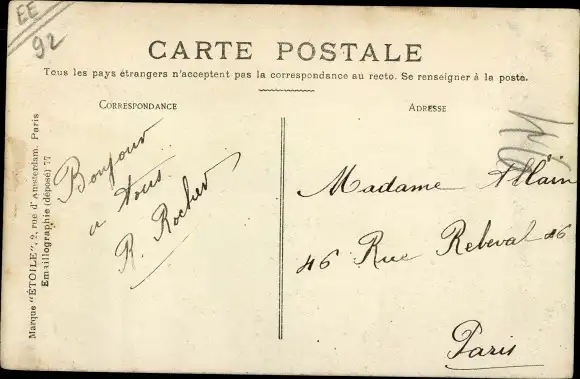 EE
92
CARTE POSTALE
Tous les pays étrangers n'acceptent pas la correspondance au recto. Se renseigner à la poste.
CORRESPONDANCE
ADRESSE
Marque "ÉTOILE", 9, rue d'Amsterdam. Paris
Emaillographie (déposé) 77
Bonjour
a tous
R. Rocher
Madame Allain
46 Rue Rebeval 46
Paris